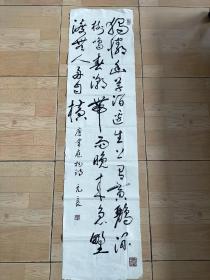 獨憐幽草澗邊生上有黃鸝深
樹鳴春潮帶雨晚來急野
渡無人舟自橫
唐韋應物詩